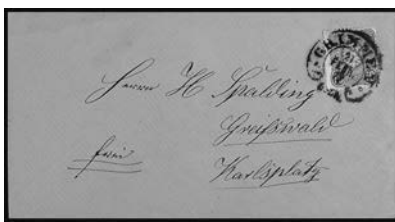 GRIMMEN
Herrn H Spalding
Greifswald
frei
Karlsplatz